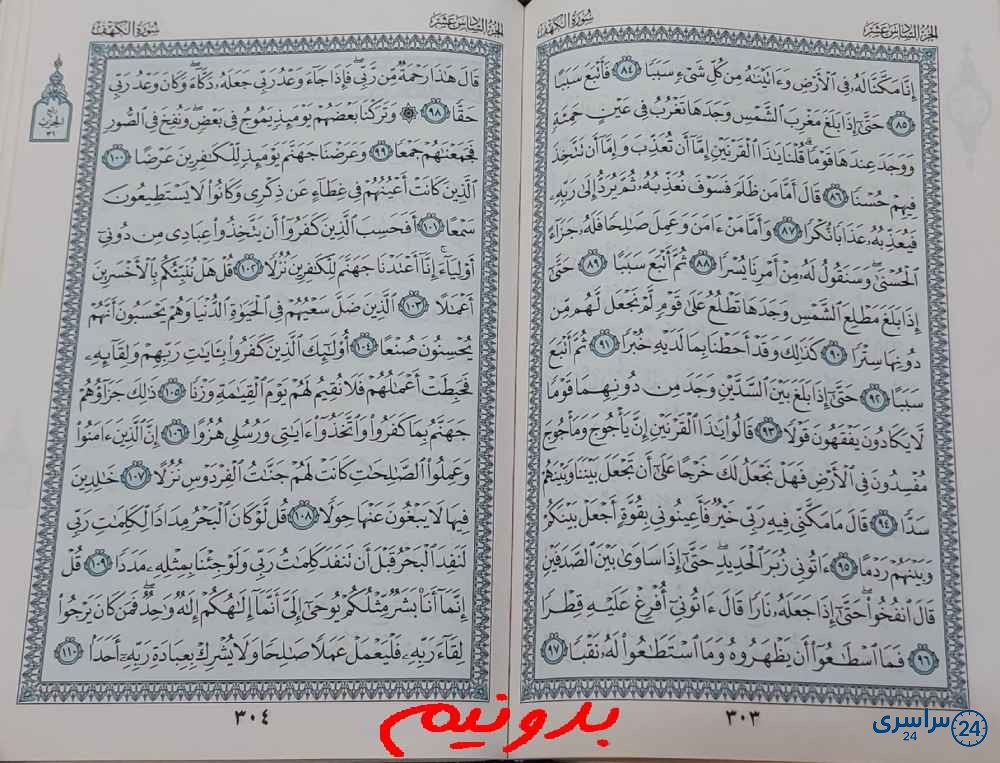 الجزء السادس عشر
سورة الكهف
إِنَّا مَكَّنَّا لَهُۥ فِى ٱلْأَرْضِ وَءَاتَيْنَٰهُ مِن كُلِّ شَىْءٍ سَبَبًا ٨٤ فَأَتْبَعَ سَبَبًا
٨٥ حَتَّىٰٓ إِذَا بَلَغَ مَغْرِبَ ٱلشَّمْسِ وَجَدَهَا تَغْرُبُ فِى عَيْنٍ حَمِئَةٍ
وَوَجَدَ عِندَهَا قَوْمًا ۗ قُلْنَا يَٰذَا ٱلْقَرْنَيْنِ إِمَّآ أَن تُعَذِّبَ وَإِمَّآ أَن تَتَّخِذَ
فِيهِمْ حُسْنًا ٨٦ قَالَ أَمَّا مَن ظَلَمَ فَسَوْفَ نُعَذِّبُهُۥ ثُمَّ يُرَدُّ إِلَىٰ رَبِّهِۦ
فَيُعَذِّبُهُۥ عَذَابًا نُّكْرًا ٨٧ وَأَمَّا مَنْ ءَامَنَ وَعَمِلَ صَٰلِحًا فَلَهُۥ جَزَآءً
ٱلْحُسْنَىٰ ۖ وَسَنَقُولُ لَهُۥ مِنْ أَمْرِنَا يُسْرًا ٨٨ ثُمَّ أَتْبَعَ سَبَبًا ٨٩ حَتَّىٰٓ
إِذَا بَلَغَ مَطْلِعَ ٱلشَّمْسِ وَجَدَهَا تَطْلُعُ عَلَىٰ قَوْمٍ لَّمْ نَجْعَل لَّهُم مِّن
دُونِهَا سِتْرًا ٩٠ كَذَٰلِكَ وَقَدْ أَحَطْنَا بِمَا لَدَيْهِ خُبْرًا ٩١ ثُمَّ أَتْبَعَ
سَبَبًا ٩٢ حَتَّىٰٓ إِذَا بَلَغَ بَيْنَ ٱلسَّدَّيْنِ وَجَدَ مِن دُونِهِمَا قَوْمًا
لَّا يَكَادُونَ يَفْقَهُونَ قَوْلًا ٩٣ قَالُوا۟ يَٰذَا ٱلْقَرْنَيْنِ إِنَّ يَأْجُوجَ وَمَأْجُوجَ
مُفْسِدُونَ فِى ٱلْأَرْضِ فَهَلْ نَجْعَلُ لَكَ خَرْجًا عَلَىٰٓ أَن تَجْعَلَ بَيْنَنَا وَبَيْنَهُمْ
سَدًّا ٩٤ قَالَ مَا مَكَّنِّى فِيهِ رَبِّى خَيْرٌ فَأَعِينُونِى بِقُوَّةٍ أَجْعَلْ بَيْنَكُمْ
وَبَيْنَهُمْ رَدْمًا ٩٥ ءَاتُونِى زُبَرَ ٱلْحَدِيدِ ۖ حَتَّىٰٓ إِذَا سَاوَىٰ بَيْنَ ٱلصَّدَفَيْنِ
قَالَ ٱنفُخُوا۟ ۖ حَتَّىٰٓ إِذَا جَعَلَهُۥ نَارًا قَالَ ءَاتُونِىٓ أُفْرِغْ عَلَيْهِ قِطْرًا
٩٦ فَمَا ٱسْطَٰعُوٓا۟ أَن يَظْهَرُوهُ وَمَا ٱسْتَطَٰعُوا۟ لَهُۥ نَقْبًا ٩٧
٣٠٣
الجزء السادس عشر
سورة الكهف
قَالَ هَٰذَا رَحْمَةٌ مِّن رَّبِّى ۖ فَإِذَا جَآءَ وَعْدُ رَبِّى جَعَلَهُۥ دَكَّآءَ ۖ وَكَانَ وَعْدُ رَبِّى
حَقًّا ٩٨ ۞ وَتَرَكْنَا بَعْضَهُمْ يَوْمَئِذٍ يَمُوجُ فِى بَعْضٍ ۖ وَنُفِخَ فِى ٱلصُّورِ
فَجَمَعْنَٰهُمْ جَمْعًا ٩٩ وَعَرَضْنَا جَهَنَّمَ يَوْمَئِذٍ لِّلْكَٰفِرِينَ عَرْضًا ١٠٠
ٱلَّذِينَ كَانَتْ أَعْيُنُهُمْ فِى غِطَآءٍ عَن ذِكْرِى وَكَانُوا۟ لَا يَسْتَطِيعُونَ
سَمْعًا ١٠١ أَفَحَسِبَ ٱلَّذِينَ كَفَرُوٓا۟ أَن يَتَّخِذُوا۟ عِبَادِى مِن دُونِىٓ
أَوْلِيَآءَ ۚ إِنَّآ أَعْتَدْنَا جَهَنَّمَ لِلْكَٰفِرِينَ نُزُلًا ١٠٢ قُلْ هَلْ نُنَبِّئُكُم بِٱلْأَخْسَرِينَ
أَعْمَٰلًا ١٠٣ ٱلَّذِينَ ضَلَّ سَعْيُهُمْ فِى ٱلْحَيَوٰةِ ٱلدُّنْيَا وَهُمْ يَحْسَبُونَ أَنَّهُمْ
يُحْسِنُونَ صُنْعًا ١٠٤ أُو۟لَٰٓئِكَ ٱلَّذِينَ كَفَرُوا۟ بِـَٔايَٰتِ رَبِّهِمْ وَلِقَآئِهِۦ
فَحَبِطَتْ أَعْمَٰلُهُمْ فَلَا نُقِيمُ لَهُمْ يَوْمَ ٱلْقِيَٰمَةِ وَزْنًا ١٠٥ ذَٰلِكَ جَزَآؤُهُمْ
جَهَنَّمُ بِمَا كَفَرُوا۟ وَٱتَّخَذُوٓا۟ ءَايَٰتِى وَرُسُلِى هُزُوًا ١٠٦ إِنَّ ٱلَّذِينَ ءَامَنُوا۟
وَعَمِلُوا۟ ٱلصَّٰلِحَٰتِ كَانَتْ لَهُمْ جَنَّٰتُ ٱلْفِرْدَوْسِ نُزُلًا ١٠٧ خَٰلِدِينَ
فِيهَا لَا يَبْغُونَ عَنْهَا حِوَلًا ١٠٨ قُل لَّوْ كَانَ ٱلْبَحْرُ مِدَادًا لِّكَلِمَٰتِ رَبِّى
لَنَفِدَ ٱلْبَحْرُ قَبْلَ أَن تَنفَدَ كَلِمَٰتُ رَبِّى وَلَوْ جِئْنَا بِمِثْلِهِۦ مَدَدًا ١٠٩ قُلْ
إِنَّمَآ أَنَا۠ بَشَرٌ مِّثْلُكُمْ يُوحَىٰٓ إِلَىَّ أَنَّمَآ إِلَٰهُكُمْ إِلَٰهٌ وَٰحِدٌ ۖ فَمَن كَانَ يَرْجُوا۟
لِقَآءَ رَبِّهِۦ فَلْيَعْمَلْ عَمَلًا صَٰلِحًا وَلَا يُشْرِكْ بِعِبَادَةِ رَبِّهِۦٓ أَحَدًۢا ١١٠
الحزب
٣١
٣٠٤
بدونیم
سراسری
24
24